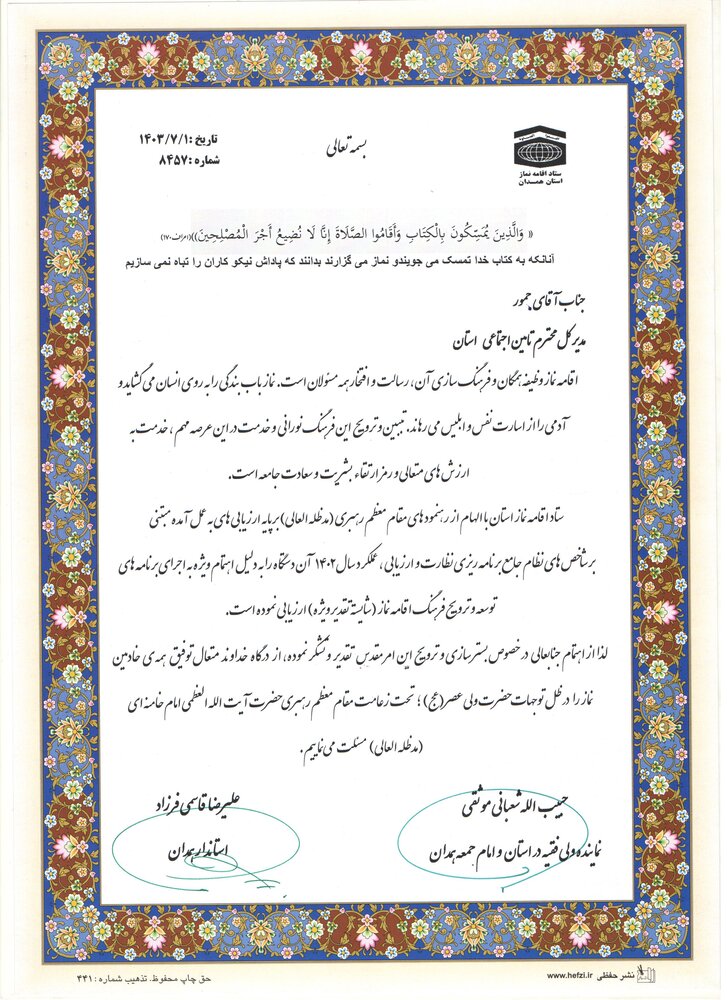 بسمه تعالی
تاریخ :۱۴۰۳/۷/۱
شماره :۸۴۵۷
ستاد اقامه نماز
استان همدان
« وَالَّذِينَ يُمَسِّكُونَ بِالْكِتَابِ وَأَقَامُوا الصَّلَاةَ إِنَّا لَا نُضِيعُ أَجْرَ الْمُصْلِحِينَ))(اعراف-۱۷۰)
آنانکه به کتاب خدا تمسک می جویندو نماز می گزارند بدانند که پاداش نیکو کاران را تباه نمی سازیم
جناب آقای جمور
مدیر کل محترم تامین اجتماعی استان
اقامه نماز وظیفه همگان و فرهنگ سازی آن، رسالت و افتخار همه مسئولان است. نماز باب بندگی را به روی انسان می گشاید و
آدمی را از اسارت نفس و ابلیس می رهاند. تبیین و ترویج این فرهنگ نورانی و خدمت در این عرصه مهم ، خدمت به
ارزش های متعالی و رمز ارتقاء بشریت و سعادت جامعه است.
ستاد اقامه نماز استان با الهام از رهنمودهای مقام معظم رهبری (مدظله العالی) بر پایه ارزیابی های به عمل آمده مبتنی
بر شاخص های نظام جامع برنامه ریزی نظارت و ارزیابی ، عملکرد سال ۱۴۰۲ آن دستگاه را به دلیل اهتمام ویژه به اجرای برنامه های
توسعه و ترویج فرهنگ اقامه نماز (شایسته تقدیر ویژه) ارزیابی نموده است.
لذا از اهتمام جنابعالی در خصوص بسترسازی و ترویج این امر مقدس تقدیر و تشکر نموده، از درگاه خداوند متعال توفیق همه ی خادمین
نماز را در ظل توجهات حضرت ولی عصر (عج) ؛ تحت زعامت مقام معظم رهبری حضرت آیت الله العظمی امام خامنه ای
(مدظله العالی) مسئلت می نماییم.
حبیب الله شعبانی موثقی
نماینده ولی فقیه در استان و امام جمعه همدان
علیرضا قاسمی فرزاد
استاندار همدان
نشر حفظی www.hefzi.ir
حق چاپ محفوظ. تذهیب شماره : ۴۴۱